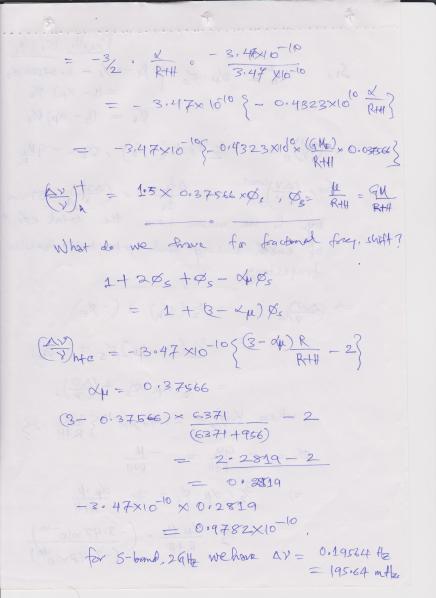 = -3/2 · α/(R+H) · -3.47×10^-10/3.47×10^-10
= -3.47×10^-10 { -0.4323×10^10 α/(R+H) }
= -3.47×10^-10 { -0.4323×10^10 × (GME)/(R+H) × 0.037566 }
(Δν/ν) = 1.5 × 0.37566 × φs, φs = μ/(R+H) = GM/(R+H)
What do we have for fractional freq. shift?
1 + 2φs + φs - αμ φs
= 1 + (3 - αμ) φs
(Δν/ν)h+c = -3.47×10^-10 { (3 - αμ) R/(R+H) - 2 }
αμ = 0.37566
(3 - 0.37566) × 6371/(6371+956) - 2
= 2.2819 - 2
= 0.2819
-3.47×10^-10 × 0.2819
= 0.9782×10^-10.
for S-band, 2GHz we have Δν = 0.19564 Hz
= 195.64 mHz